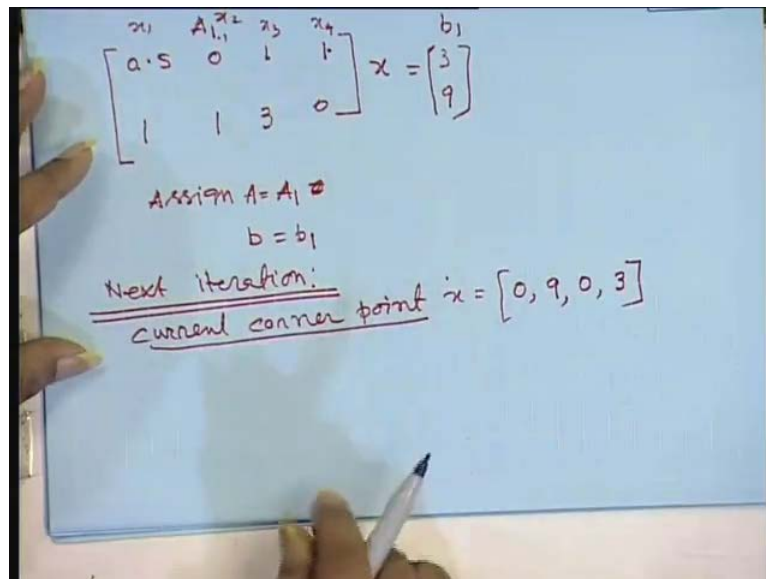 x₁ A₁,₁ x₂ x₃ x₄ b₁
[ 0.5 0 1 1 ] x = [ 3
1 1 3 0 ] 9 ]
Assign A = A₁
b = b₁
Next iteration:
current corner point x = [0, 9, 0, 3]